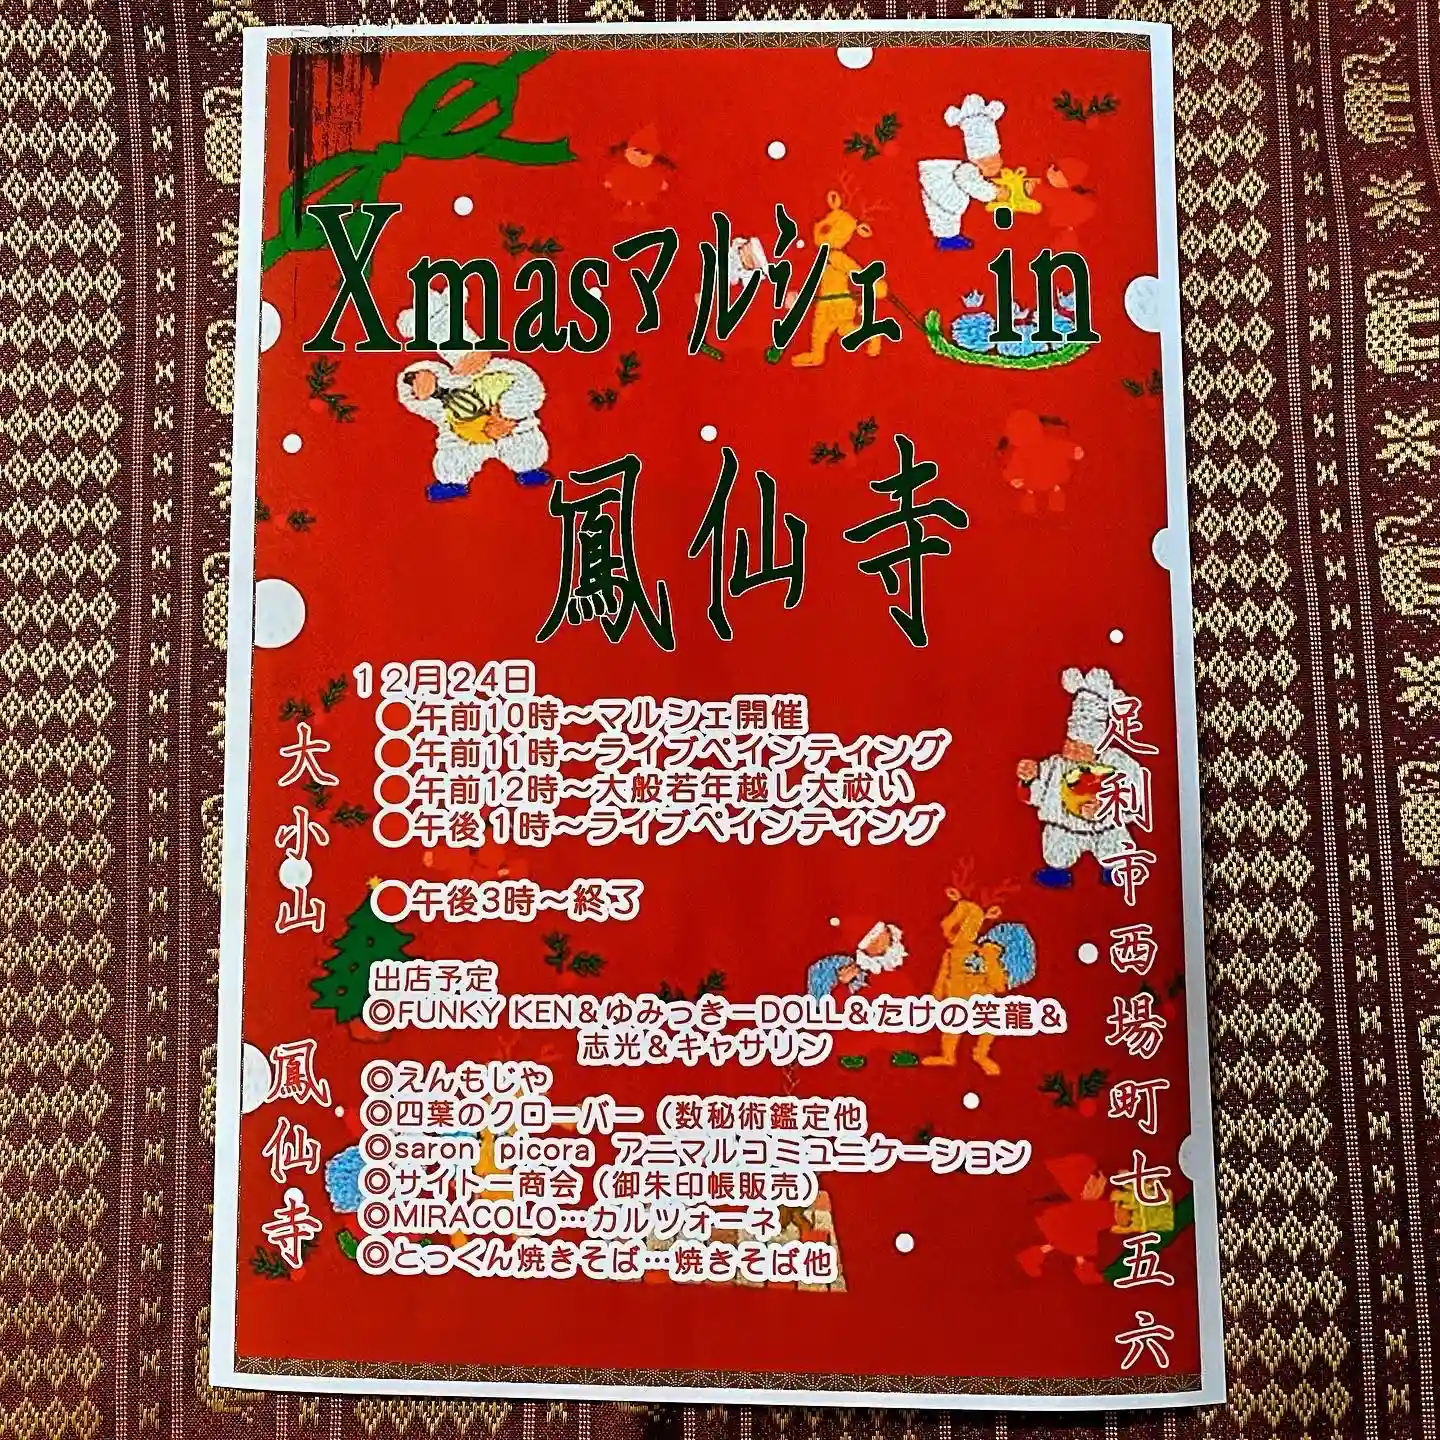 Xmasマルシェ in
鳳仙寺
12月24日
●午前10時～マルシェ開催
●午前11時～ライブペインティング
●午前12時～大般若年越し大祓い
●午後1時～ライブペインティング
●午後3時～終了
出店予定
◎FUNKY KEN＆ゆみっきーDOLL＆たけの笑龍＆
志光＆キャサリン
◎えんもじや
◎四葉のクローバー（数秘術鑑定他
◎saron picora アニマルコミュニケーション
◎サイトー商会（御朱印帳販売）
◎MIRACOLO…カルツォーネ
◎とっくん焼きそば…焼きそば他
足利市西場町七五六
大小山 鳳仙寺